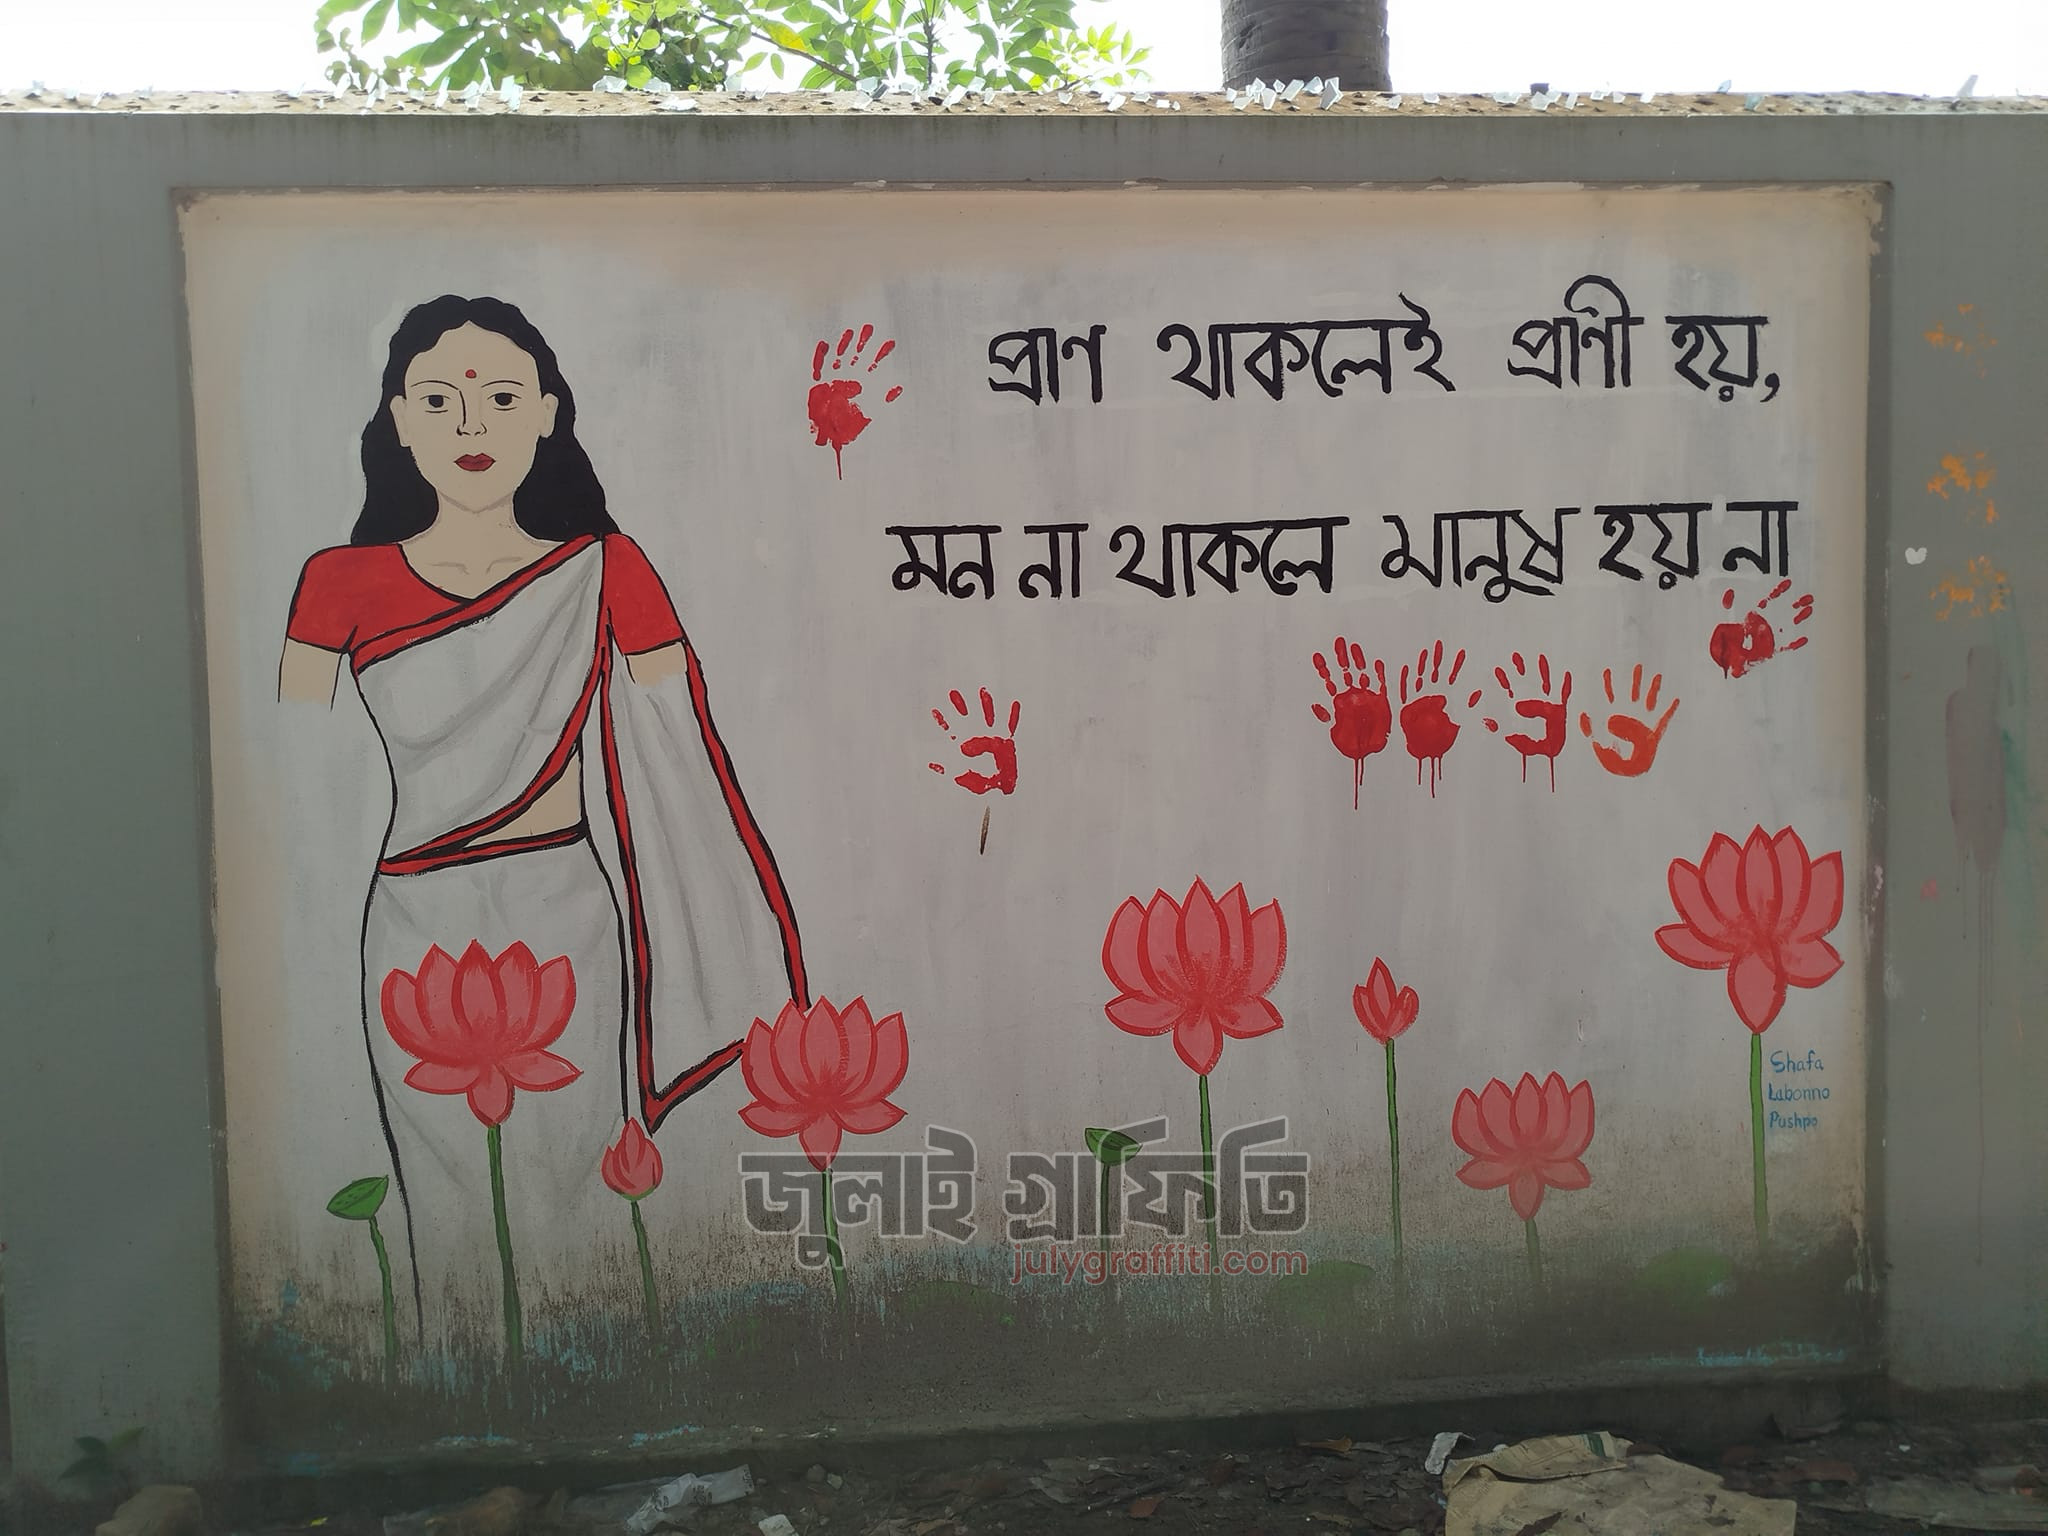 প্রাণ থাকলেই প্রাণী হয়,
মন না থাকলে মানুষ হয় না
Shafa
Labonno
Pushpo
জুলাই গ্রাফিতি
julygraffiti.com